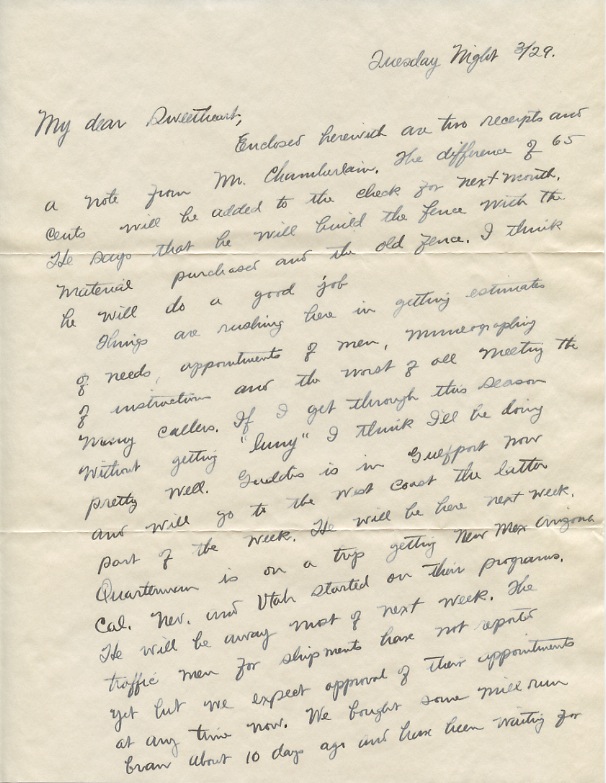 Tuesday Night 3/29.
My dear Sweetheart,
Enclosed herewith are two receipts and
a note from Mr. Chamberlain. The difference of 65
cents will be added to the check for next month.
He says that he will build the fence with the
material purchased and the old fence. I think
he will do a good job
Things are rushing here in getting estimates
of needs, appointments of men, mimeographing
of instructions and the worst of all meeting the
many callers. If I get through this season
without getting "luny" I think I'll be doing
pretty well. is in Gulfport now
and will go to the West Coast the latter
part of the week. He will be here next week.
Quarterman is on a trip getting New Mex Arizona
Cal. Nev. and Utah started on their programs.
He will be away most of next week. The
traffic men for shipments have not reported
yet but we expect approval of their appointments
at any time now. We bought some mill run
bran about 10 days ago and have been waiting for